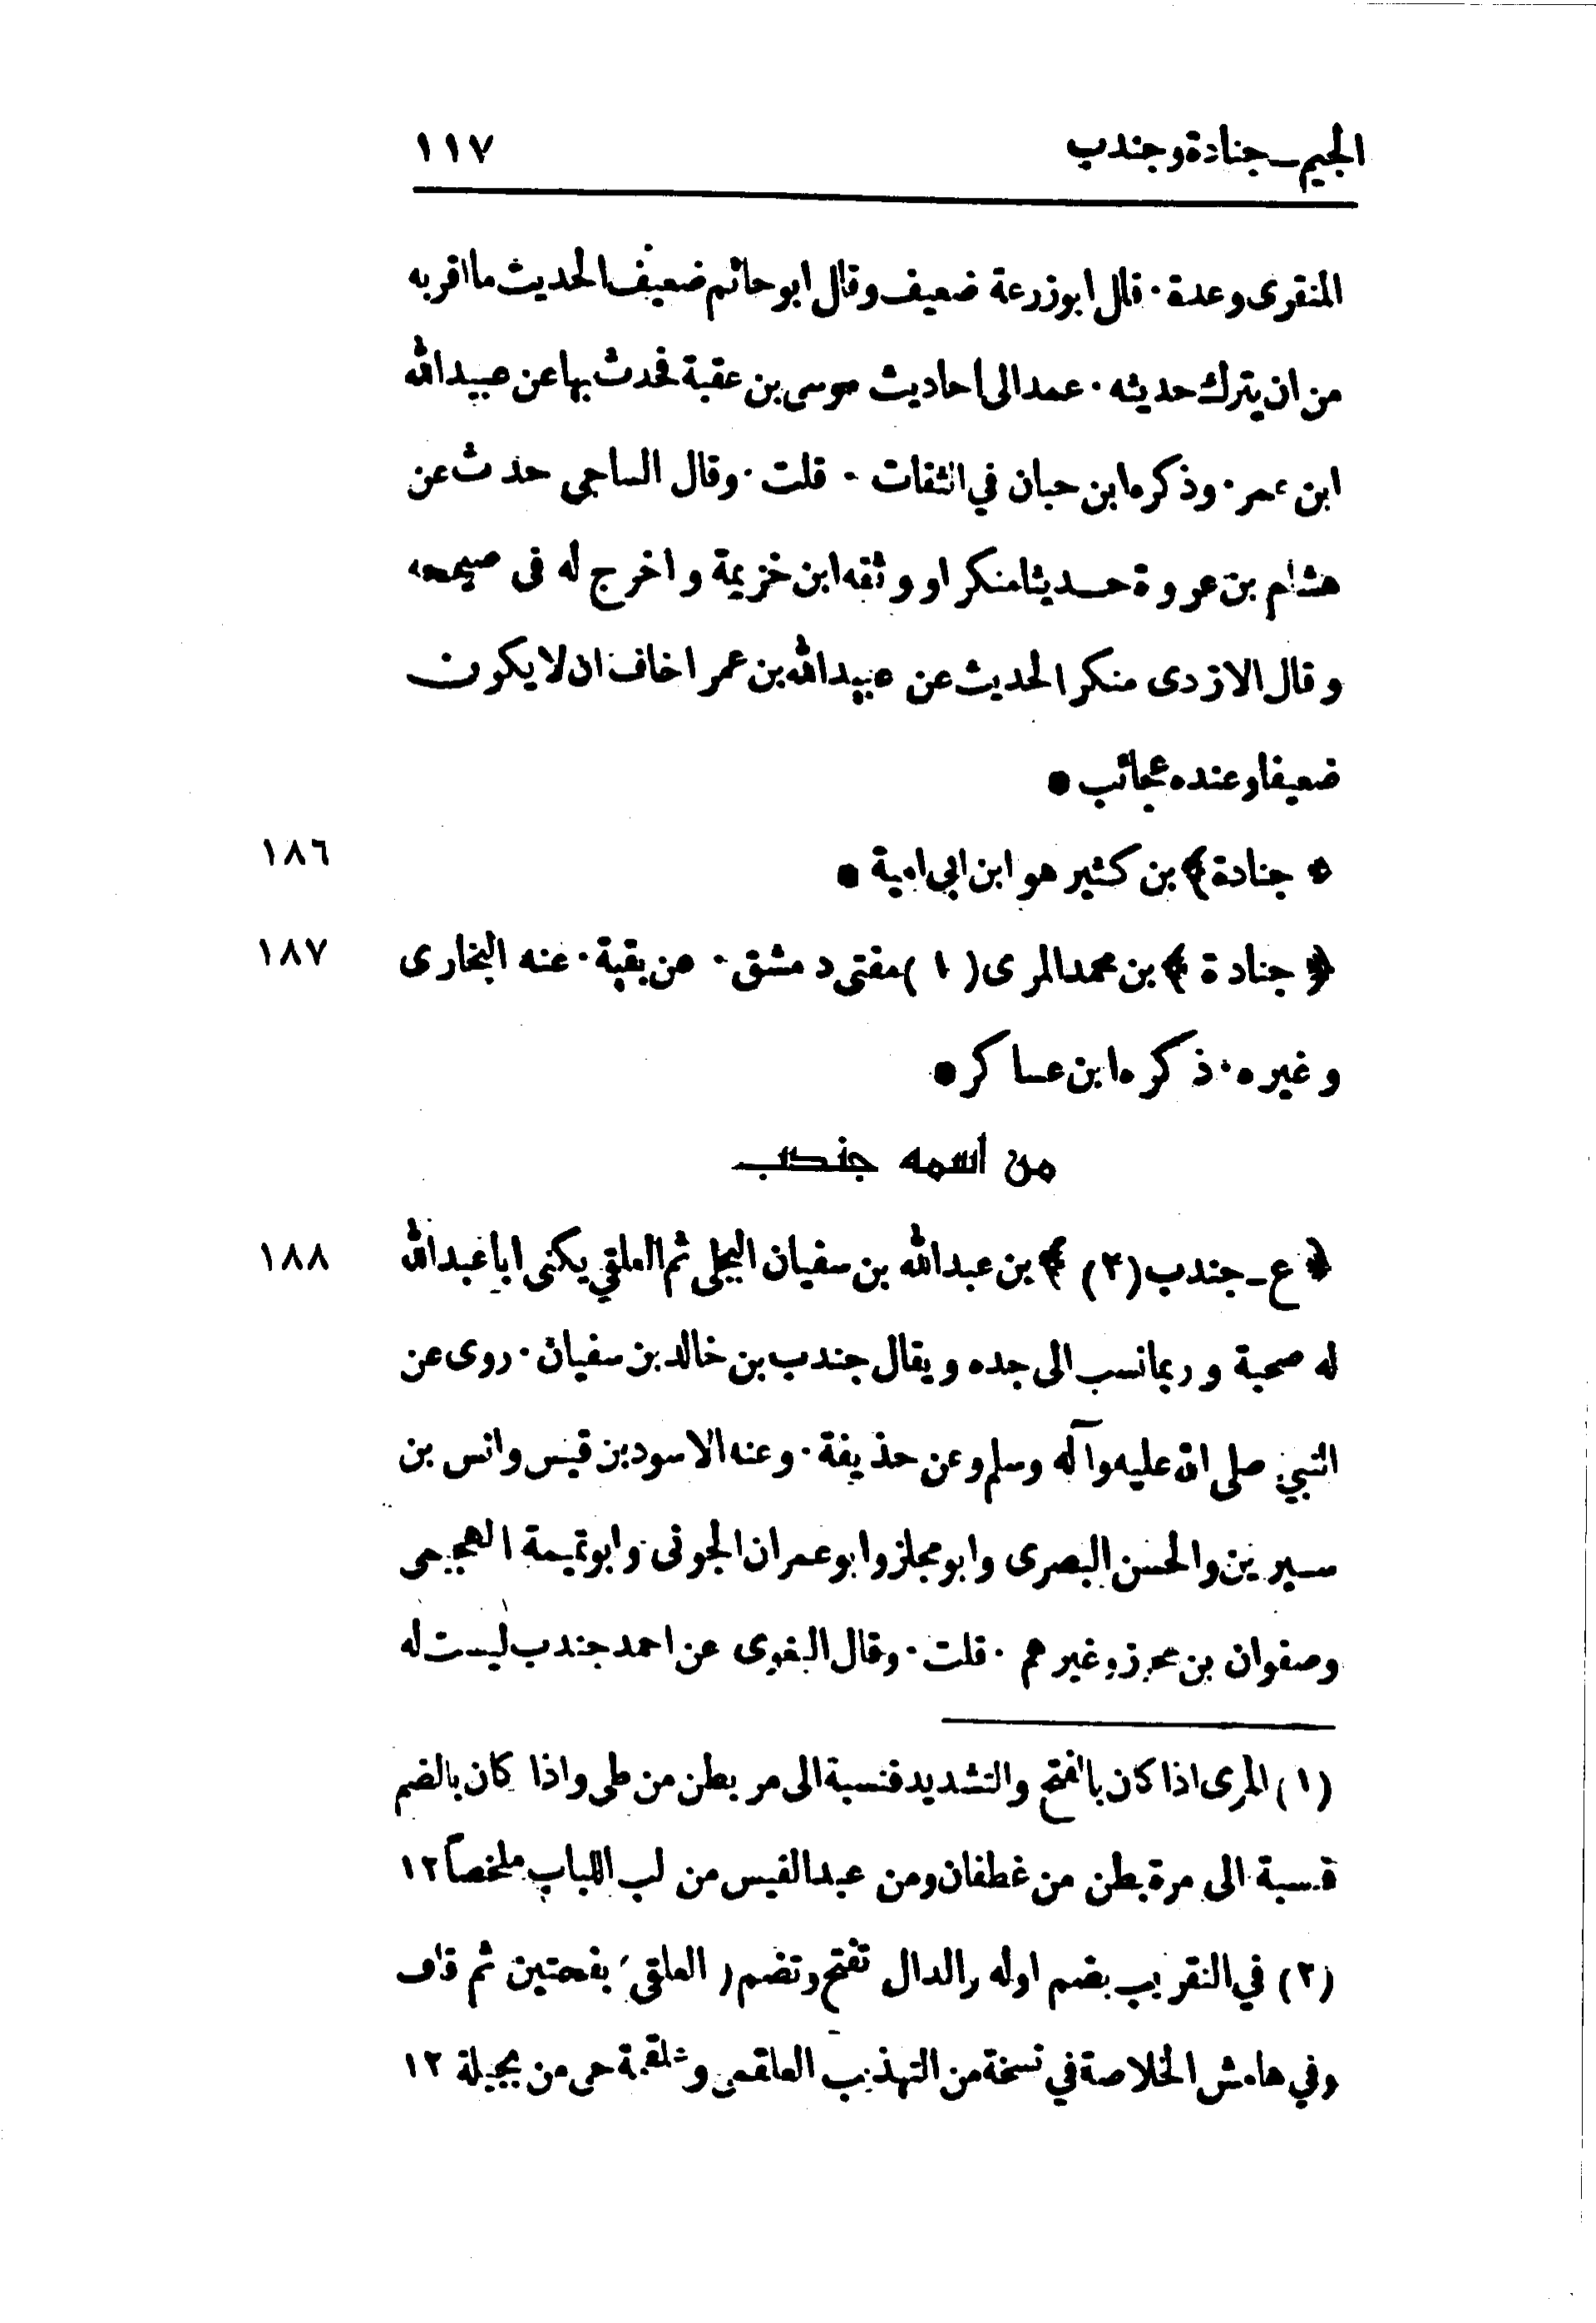 الجيم ـ جنادة وجندب ١١٧
المنقرى وعدة ٠ قال ابوزرعة ضعيف وقال ابو حاتم ضعيف الحديث ما اقربه
من ان يترك حديثه ٠ عمد الى احاديث موسى بن عقبة فحدث بها عن عبيد الله
ابن عمر ٠ وذكره ابن حبان في الثقات ٠ قلت ٠ وقال الساجى حدث عن
هشام بن عروة حديثا منكرا ووثقه ابن خزيمة واخرج له فى صحيحه
وقال الازدى منكر الحديث عن عبيد الله بن عمر اخاف ان لا يكون
ضعيفا وعنده عجائب •
﴿ جنادة ﴾ بن كثير هو ابن ابى امية • ١٨٦
﴿ جنادة ﴾ بن محمد المرى (١) مفتى دمشق ٠ عن بقية ٠ عنه البخارى ١٨٧
وغيره ٠ ذكره ابن عساكر •
من اسمه جندب
﴿ ع ـ جندب (٢) ﴾ بن عبد الله بن سفيان البجلى ثم العلقي يكنى ابا عبد الله ١٨٨
له صحبة وربما نسب الى جده ويقال جندب بن خالد بن سفيان ٠ روى عن
النبي صلى الله عليه وآله وسلم وعن حذيفة ٠ وعنه الاسود بن قيس وانس بن
سيرين والحسن البصرى وابو مجلز وابو عمران الجونى وابو تميمة الهجيمى
وصفوان بن محرز وغيرهم ٠ قلت ٠ وقال البغوى عن احمد جندب ليست له
(١) المرى اذا كان بالفتح والتشديد فنسبة الى مر بطن من طى واذا كان بالضم
فنسبة الى مرة بطن من غطفان ومن عبد القيس من لب اللباب ملخصاً ١٢
(٢) في التقريب بضم اوله والدال تفتح وتضم (العلقى) بفتحتين ثم قاف
وفي هامش الخلاصة في نسخة من التهذيب العلقمى وعلقمة حى من بجيلة ١٢